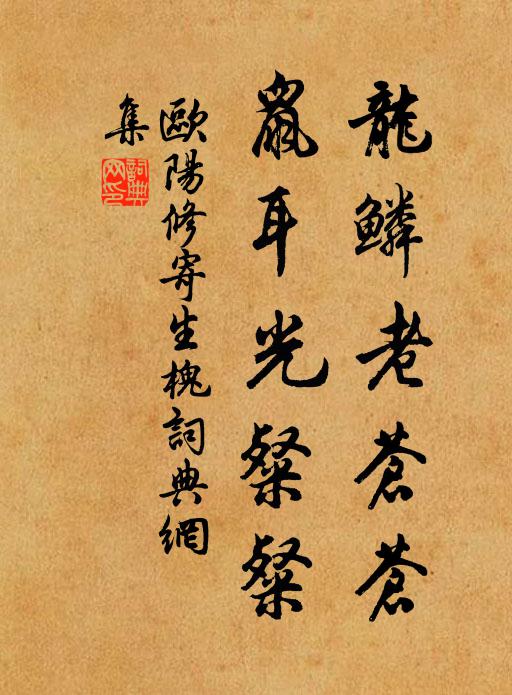 龍鱗老蒼蒼
鼠耳光粲粲
歐陽修寄生槐詞典網
集
詞典
网印